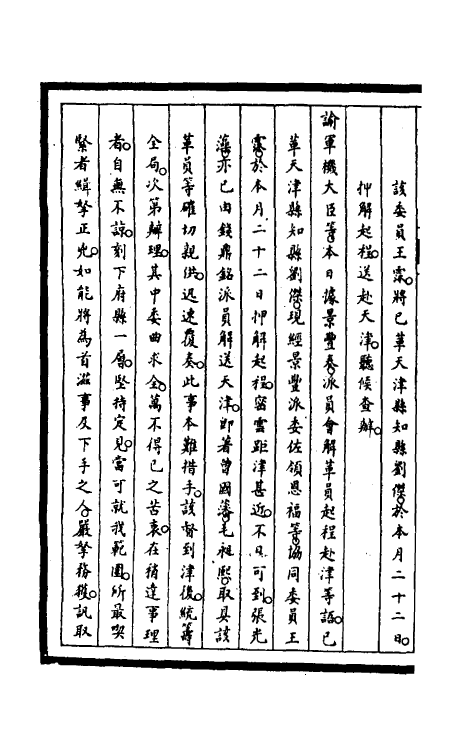 該委員王霖。將已革天津縣知縣劉傑。於本月二十二日。
押解起程。送赴天津。聽候查辦。
諭軍機大臣等。本日據景豐奏。派員會解革員起程赴津等語。已
革天津縣知縣劉傑。現經景豐派委佐領恩福等。協同委員王
霖。於本月二十二日押解起程。密雲距津甚近。不日可到。張光
藻。亦已由錢鼎銘派員解送天津。即著曾國藩。毛昶熙。取具該
革員等確切親供。迅速覆奏。此事本難措手。該督到津後。統籌
全局。次第辦理。其中委曲求全。萬不得已之苦衷。在稍達事理
者。自無不諒。刻下府縣一層。堅持定見。當可就我範圍。所最喫
緊者緝拏正兇。如能將為首滋事及下手之人。嚴拏務獲。訊取